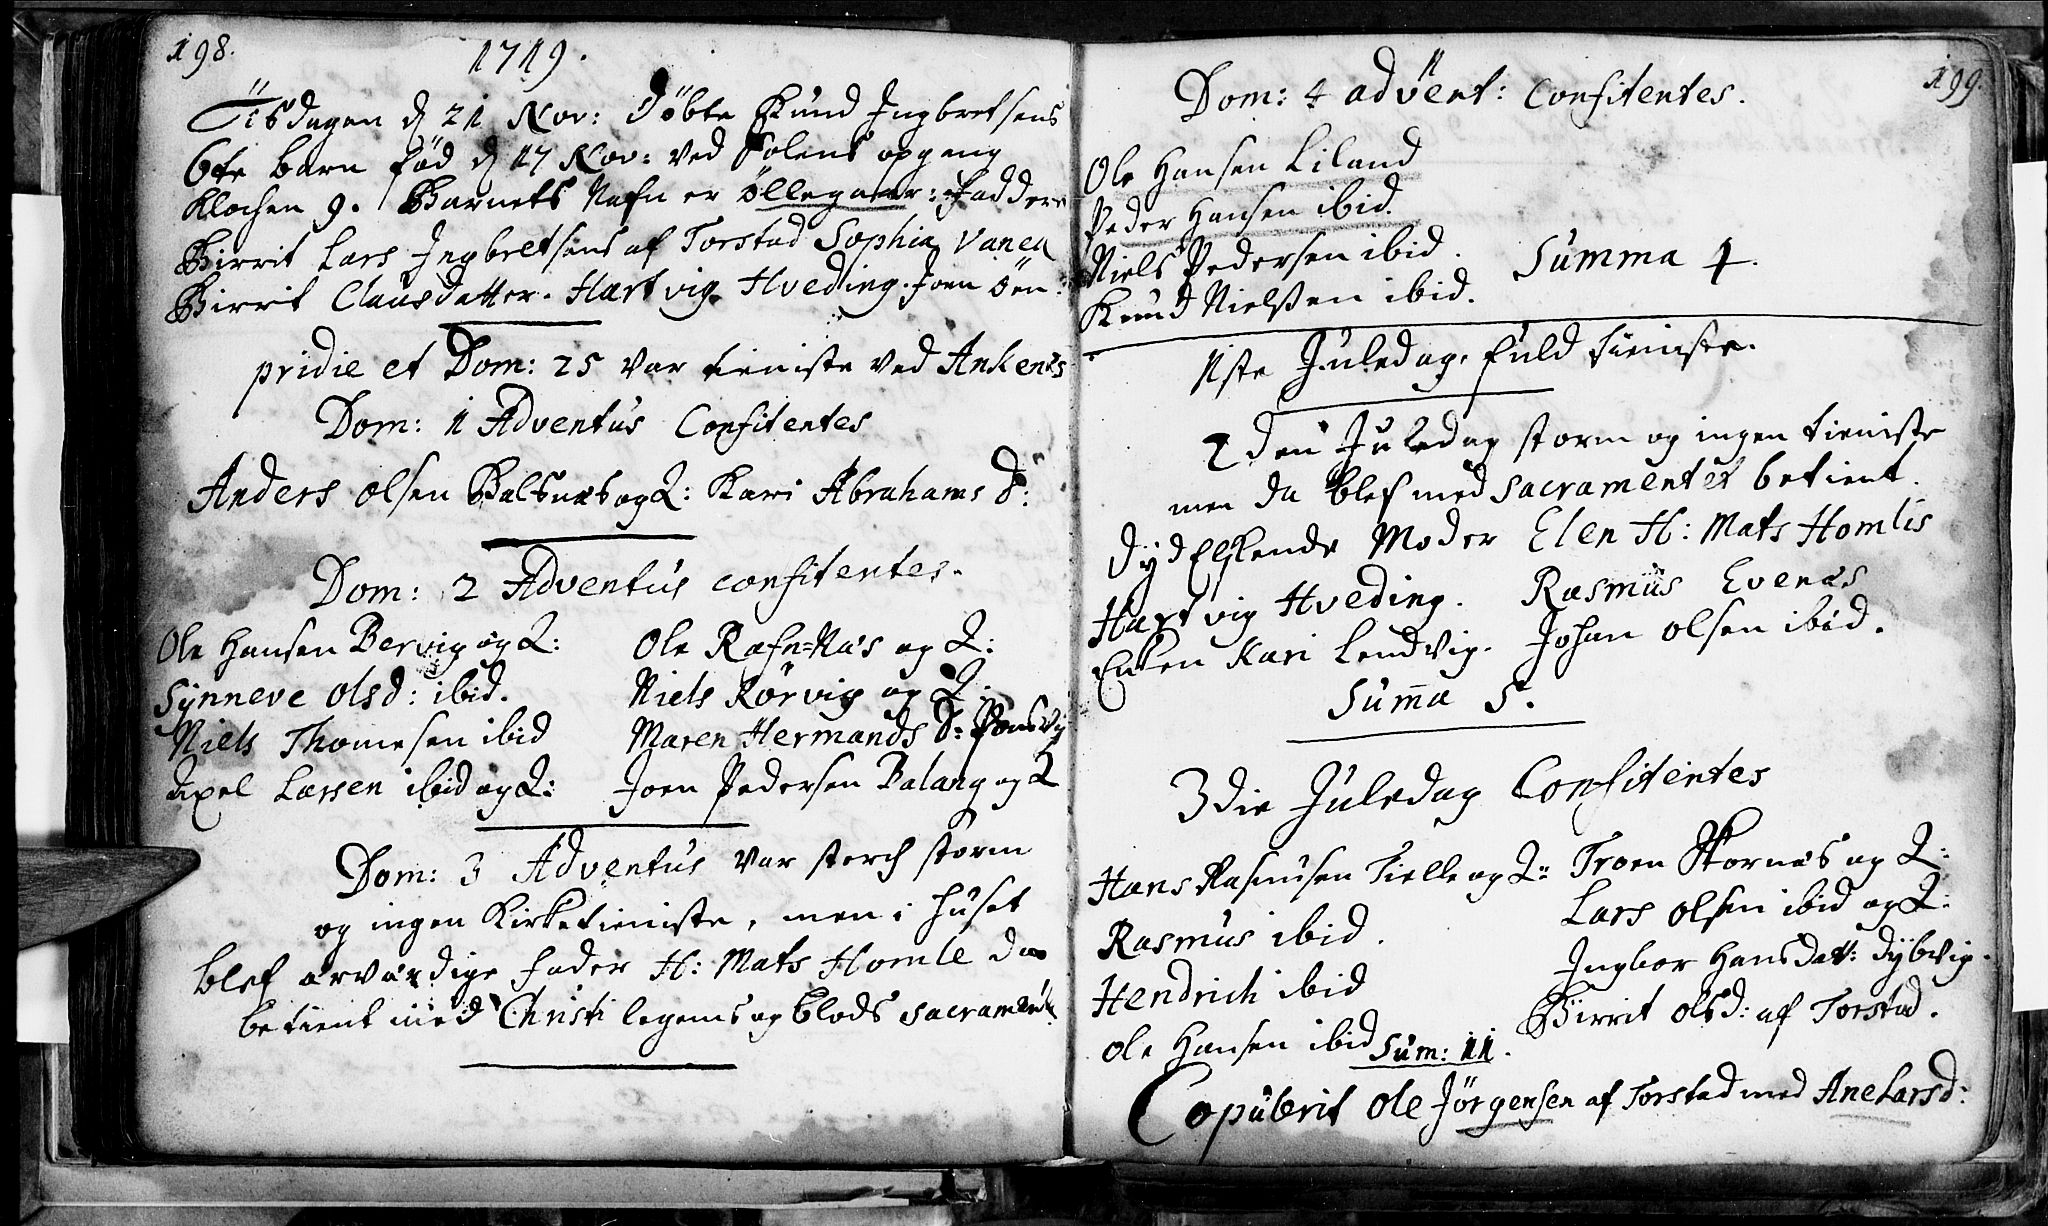 198.
1719.
Tisdagen d 21 Nov: døbte Knud Ingbretsens
6te barn fød d 17 Nov: ved Solens opgang
Klochen 9. Barnets Nafn er Øllegaar: Faddere
Birrit Lars Ingbretsens af Torstad Sophia Vanen
Birrit Clausdatter. Hartvig Hveding. Joen Øen:
pridie et Dom: 25 var tieniste ved Ankenæs
Dom: 1 Adventus Confitentes
Anders olsen Balsnæs og Q: Kari Abrahams d:
Dom: 2 Adventus confitentes.
Ole Hansen Bervig og Q:
Synneve olsd: ibid.
Niels Thomesen ibid
Axel Larsen ibid og Q:
Ole Rafn=Nas og Q:
Niels Rörvig og Q.
Maren Hermands d:
Joen Pedersen Balang og Q
Dom: 3 Adventus var sterch storm
og ingen Kirketieniste, men i huset
blef ærværdige fader H: Mats Homle da
betient med Christi legems og blods sacrament
199.
Dom: 4 advent: Confitentes.
Ole Hansen Liland
Peder Hansen ibid.
Niels Pedersen ibid.
Knud Nielssen ibid.
Summa 4.
1ste Juledag, fuld tieniste.
2den Juledag storm og ingen tieniste
men da blef med sacramentet betient.
dydElskende Moder Elen H: Mats Homlis
Hartvig Hveding. Rasmus Evenæs
Enken Kari Lendvig. Johan olsen ibid.
Suma 5.
3die Juledag Confitentes
Hans Rasmusen Tielle og Q:
Rasmus ibid.
Hendrich ibid
Ole Hansen ibid
Sum: 11.
Troen Skornæs og Q:
Lars olsen ibid og Q:
Ingbor Hansdatt: dybvig.
Birrit olsd: af Torstad.
Copulerit Ole Jörgensen af Torstad med Ane Larsd: